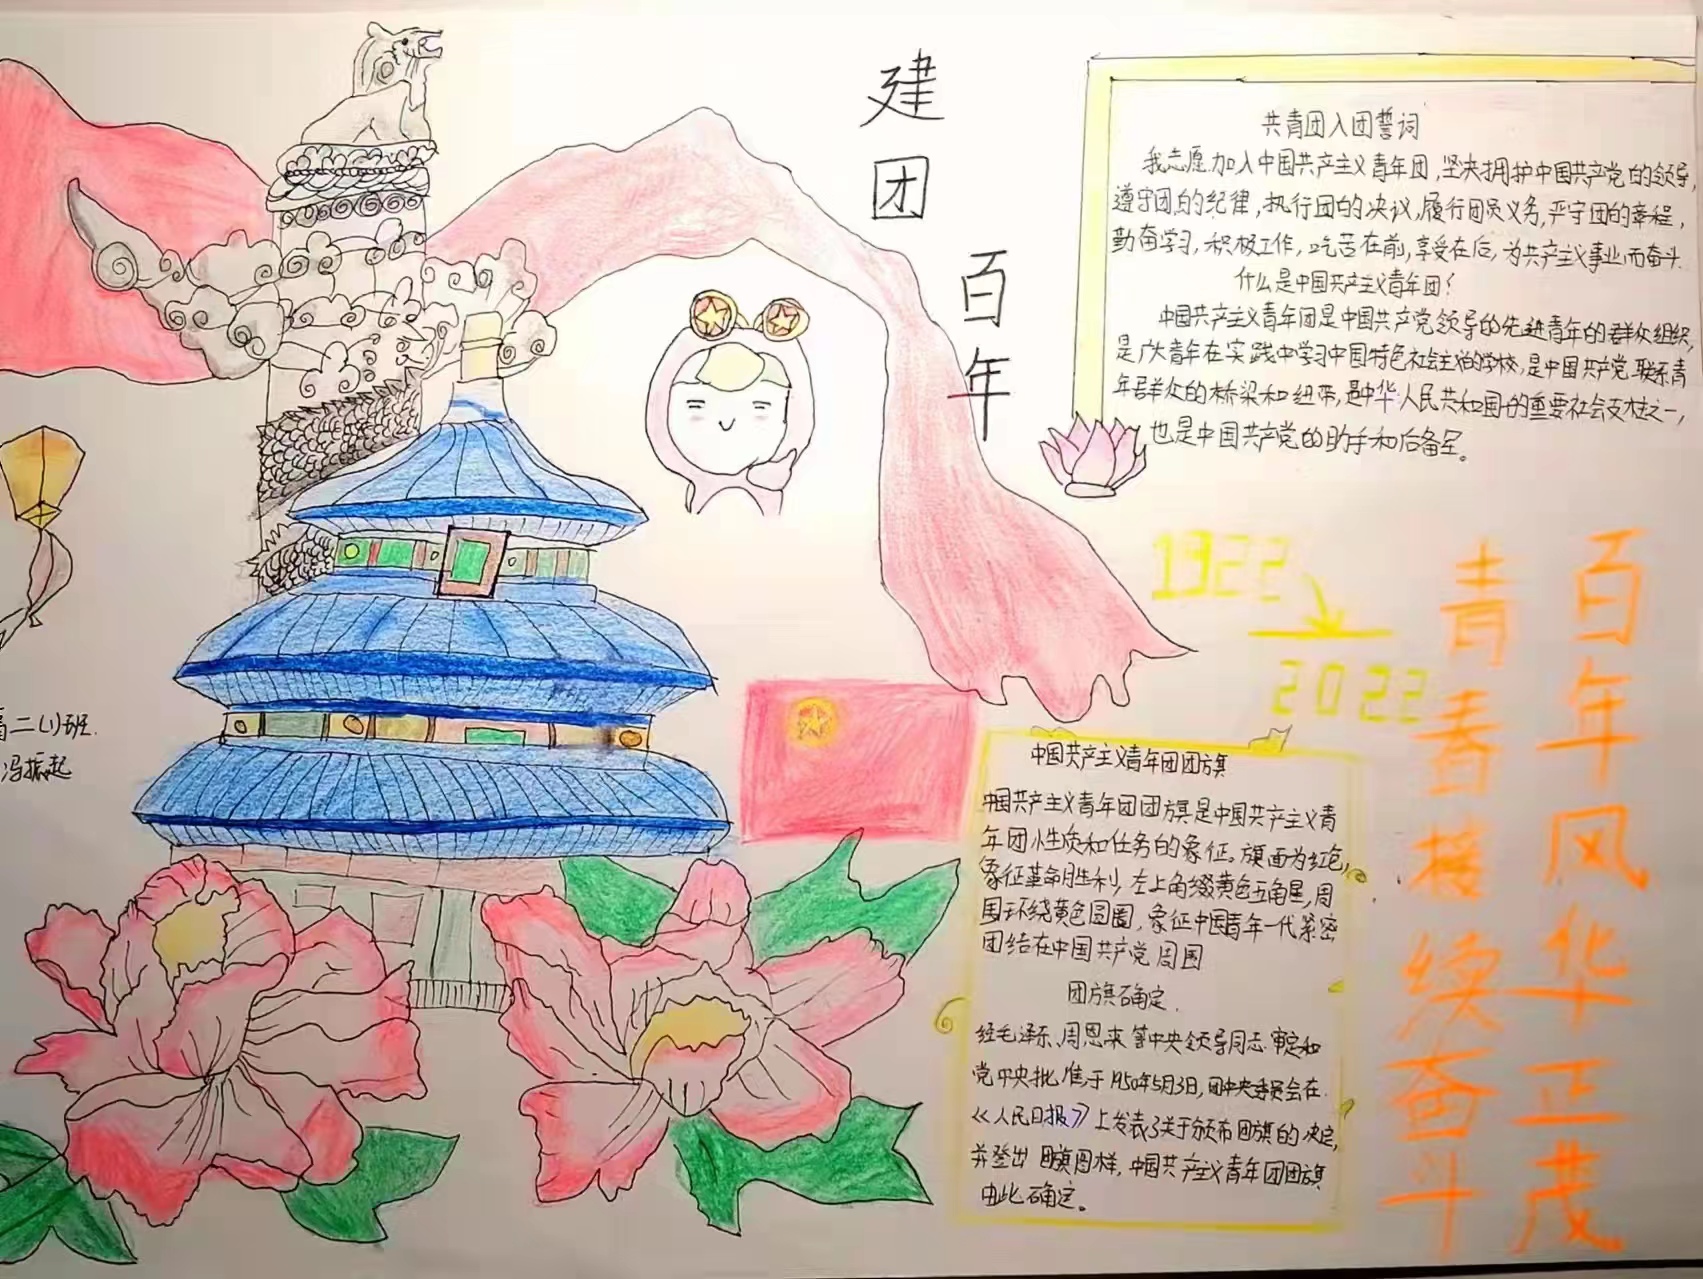 建团百年
共青团入团誓词
我志愿加入中国共产主义青年团,坚决拥护中国共产党的领导,
遵守团的纪律,执行团的决议,履行团员义务,严守团的章程,
勤奋学习,积极工作,吃苦在前,享受在后,为共产主义事业而奋斗.
什么是中国共产主义青年团?
中国共产主义青年团是中国共产党领导的先进青年的群众组织,
是广大青年在实践中学习中国特色社会主义的学校,是中国共产党联系青
年群众的桥梁和纽带,是中华人民共和国的重要社会支柱之一,
也是中国共产党的助手和后备军。
1922
2022
百年风华正茂
青春接续奋斗
中国共产主义青年团团旗
中国共产主义青年团团旗是中国共产主义青
年团性质和任务的象征。旗面为红色,
象征革命胜利,左上角缀黄色五角星,周
围环绕黄色圆圈,象征中国青年一代紧密
团结在中国共产党周围
团旗确定.
经毛泽东、周恩来等中央领导同志审定和
党中央批准于1950年5月3日,团中央委员会在
《人民日报》上发表了关于颁布团旗的决定,
并登出团旗图样,中国共产主义青年团团旗
由此确定。
高二(1)班.
冯振起